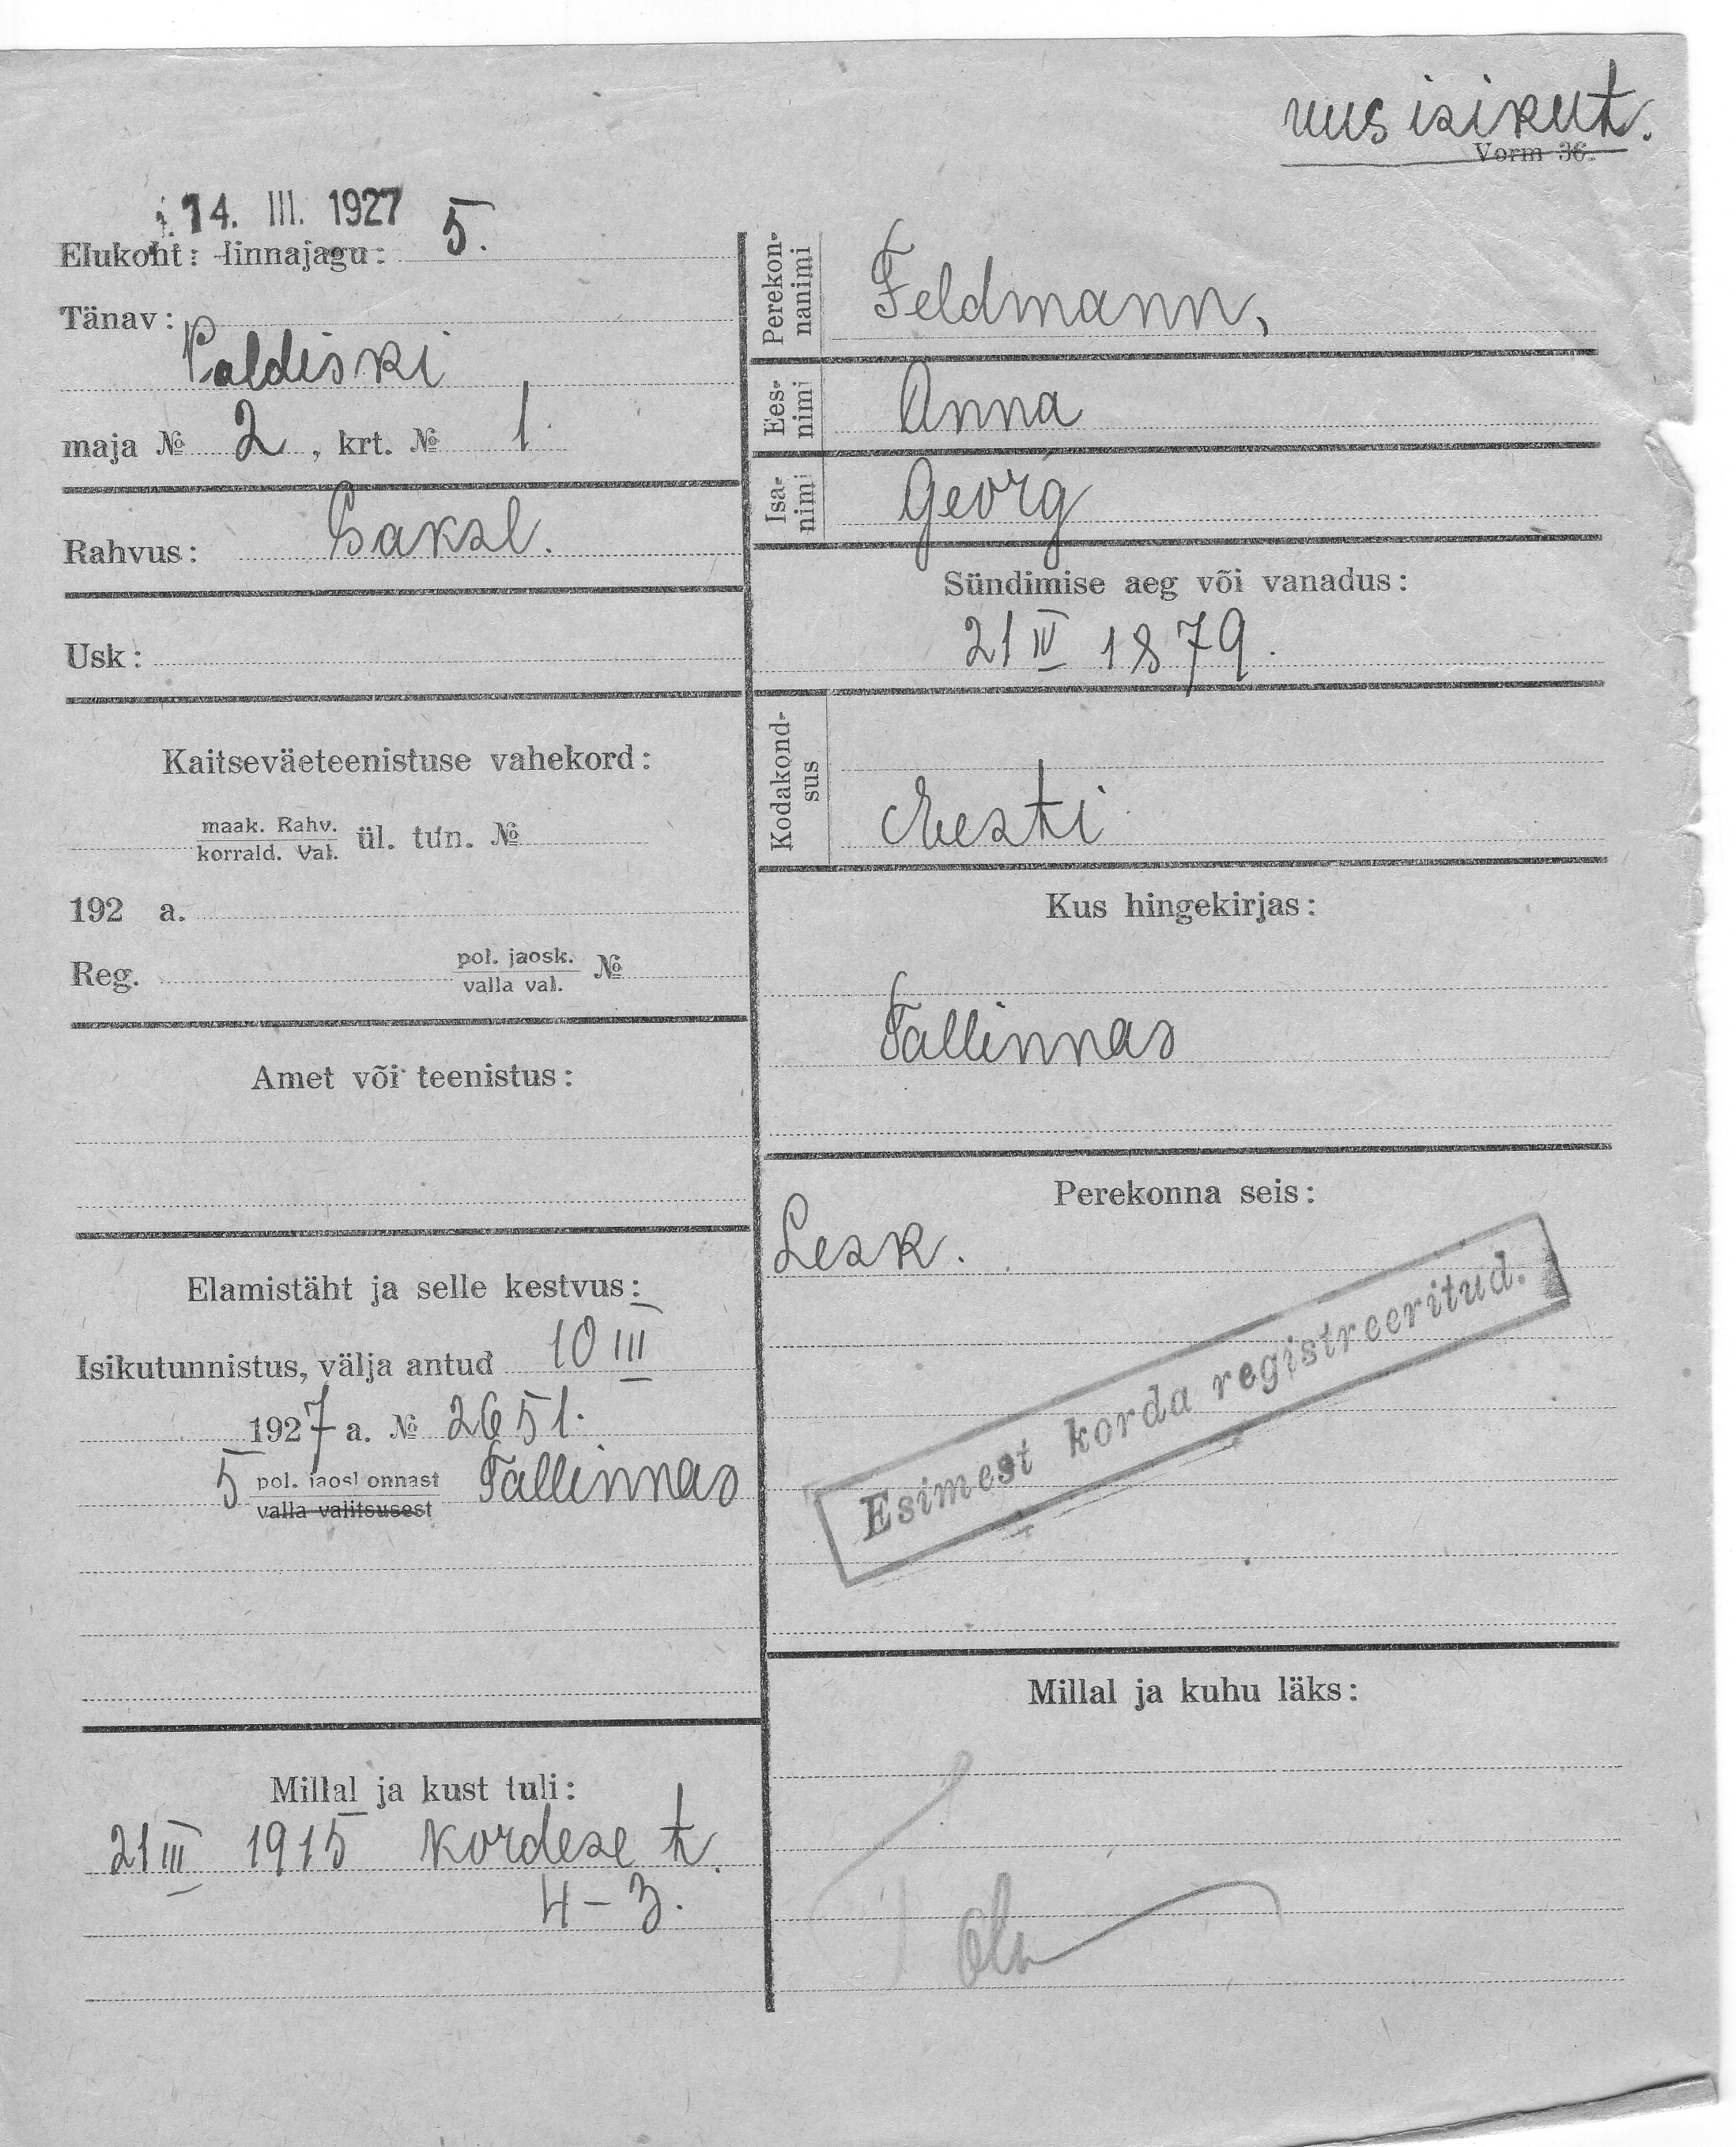 uus isikut.
Vorm 36.
14. III. 1927
Elukoht: linnajagu: 5.
Tänav:
Paldiski
maja № 2, krt. № 1.
Rahvus: Saksl.
Usk:
Kaitseväeteenistuse vahekord:
maak. Rahv.
korrald. Val. ül. tun. №
192 a.
Reg. pol. jaosk. №
valla val.
Amet või teenistus:
Elamistäht ja selle kestvus:
Isikutunnistus, välja antud 10 III
1927 a. № 2651.
5 pol. jaoskonnast Tallinnas
valla valitsusest
Millal ja kust tuli:
21 III 1915 Kordese t.
4-3.
Perekon-
nanimi Feldmann,
Ees-
nimi Anna
Isa-
nimi Georg
Sündimise aeg või vanadus:
21 IV 1879.
Kodakond-
sus Eesti
Kus hingekirjas:
Tallinnas
Perekonna seis:
Lesk.
Esimest korda registreeritud.
Millal ja kuhu läks: